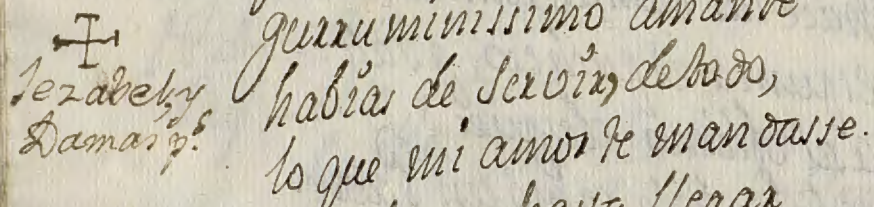 Jezabel, y
Damas ps.
gurruminissimo amante
habias de servir, de todo,
lo que mi amor te mandasse.
hasta llegar